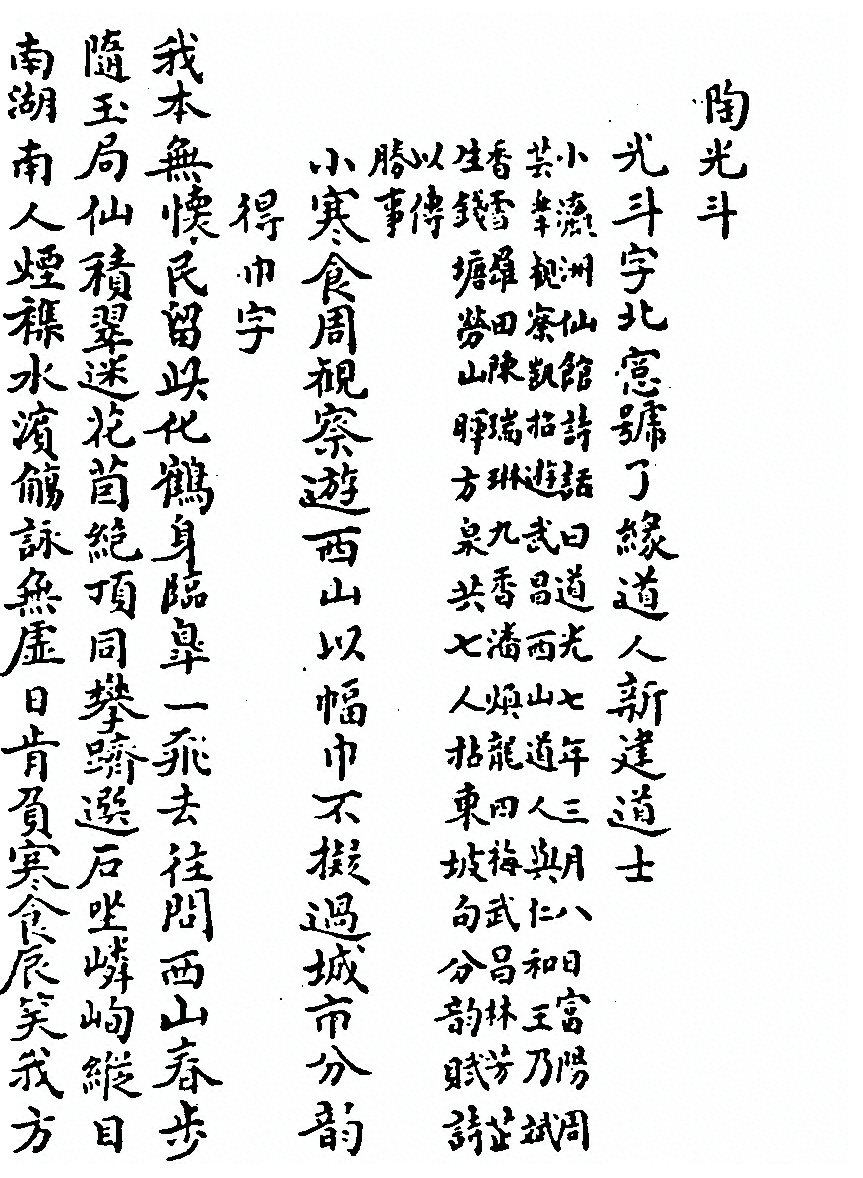 陶光斗
光斗字北窓號了緣道人新建道士
小瀛洲仙館詩話曰道光七年三月八日富陽周
芸皋觀察凱招遊武昌西山道人與仁和王乃斌
香雪羅田陳瑞琳九香潘煥龍四梅武昌林芳芷
生錢塘勞山暉方泉共七人拈東坡句分韵賦詩
以傳
勝事
小寒食周觀察遊西山以幅巾不擬過城市分韵
得巾字
我本無懷民留此化鶴身臨皋一飛去往問西山春步
隨玉局仙積翠迷花茵絕頂同攀躋選石坐嶙峋縱目
南湖南人煙襍水濱觴詠無虛日肯負寒食辰笑我方